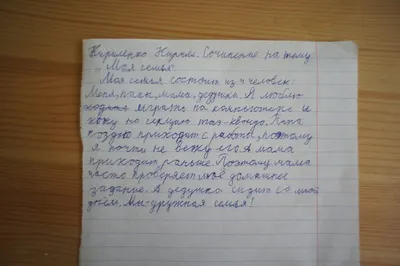 Кириленко Кирилл. Сочинение на тему
Моя семья.
Моя семья состоит из 4 человек:
Меня, папы, мамы, дедушки. Я люблю
играть на компютере и
хожу на секцию таэ-квондо. Папа
поздно приходит с работы, поэтому
я почти не вижу его. А мама
приходит раньше. Поэтому мама
часто проверяет моё домашнее
задание. А дедушка сидит со мной
днём. Мы-дружная семья!